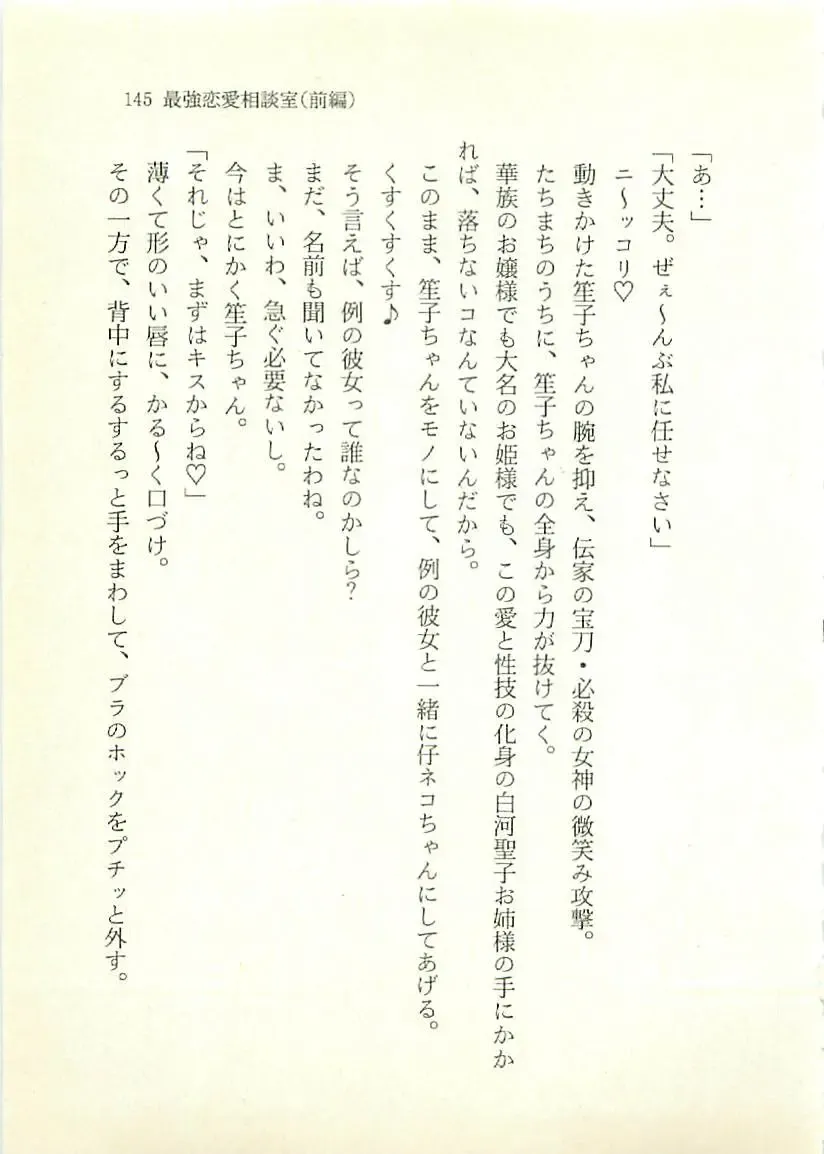 145 最強恋愛相談室(前編)
「あ…」
「大丈夫。ぜぇ〜んぶ私に任せなさい」
ニ〜ッコリ♡
動きかけた笙子ちゃんの腕を抑え、伝家の宝刀・必殺の女神の微笑み攻撃。
たちまちのうちに、笙子ちゃんの全身から力が抜けてく。
華族のお嬢様でも大名のお姫様でも、この愛と性技の化身の白河聖子お姉様の手にかか
れば、落ちないコなんていないんだから。
このまま、笙子ちゃんをモノにして、例の彼女と一緒に仔ネコちゃんにしてあげる。
くすくすくす♪
そう言えば、例の彼女って誰なのかしら?
まだ、名前も聞いてなかったわね。
ま、いいわ、急ぐ必要ないし。
今はとにかく笙子ちゃん。
「それじゃ、まずはキスからね♡」
薄くて形のいい唇に、かる〜く口づけ。
その一方で、背中にするするっと手をまわして、ブラのホックをプチッと外す。